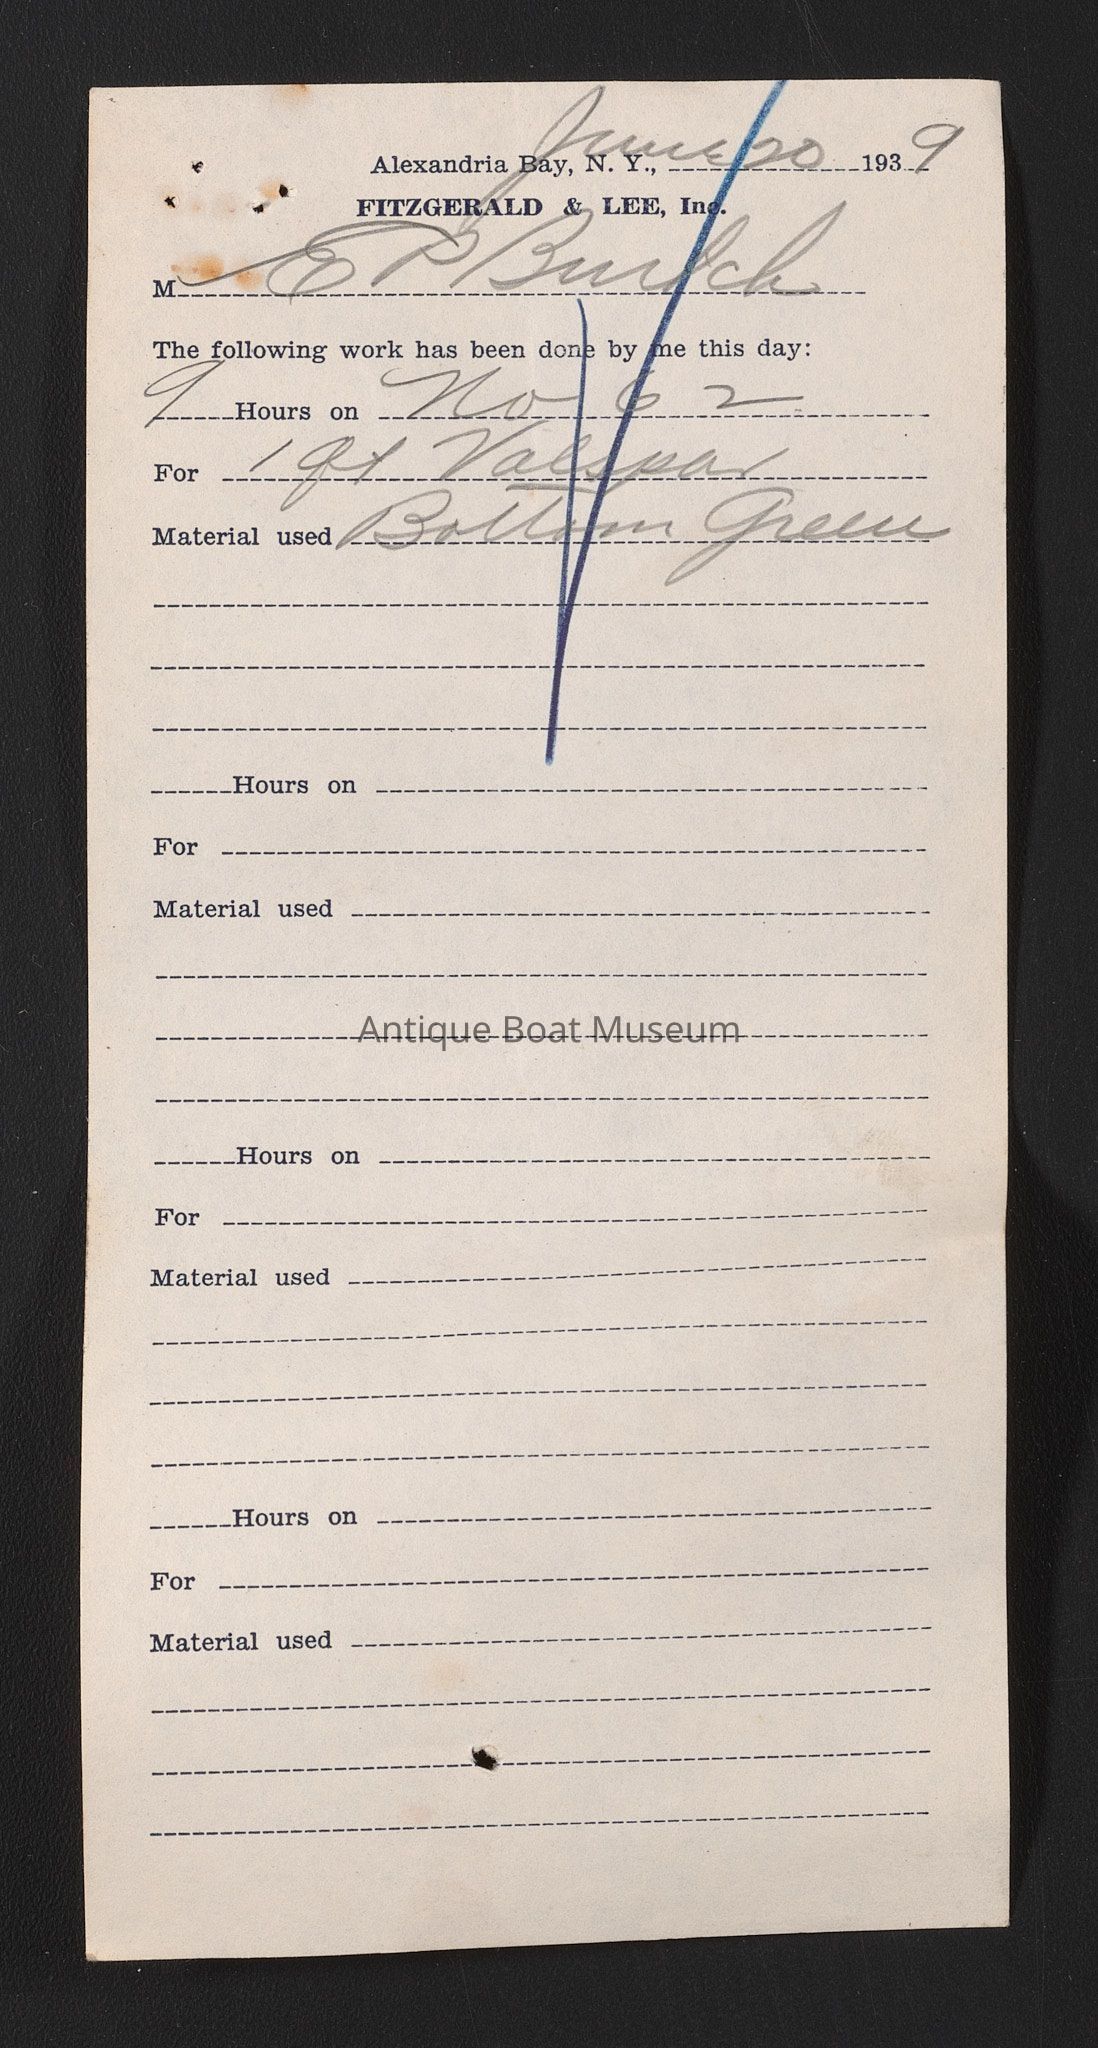 Alexandria Bay, N. Y., June 20 1939
FITZGERALD & LEE, Inc.
M E P Burtch
The following work has been done by me this day:
9 Hours on No 62
For 1 qt Valspar
Material used Bottom Green
Hours on
For
Material used
Antique Boat Museum
Hours on
For
Material used
Hours on
For
Material used